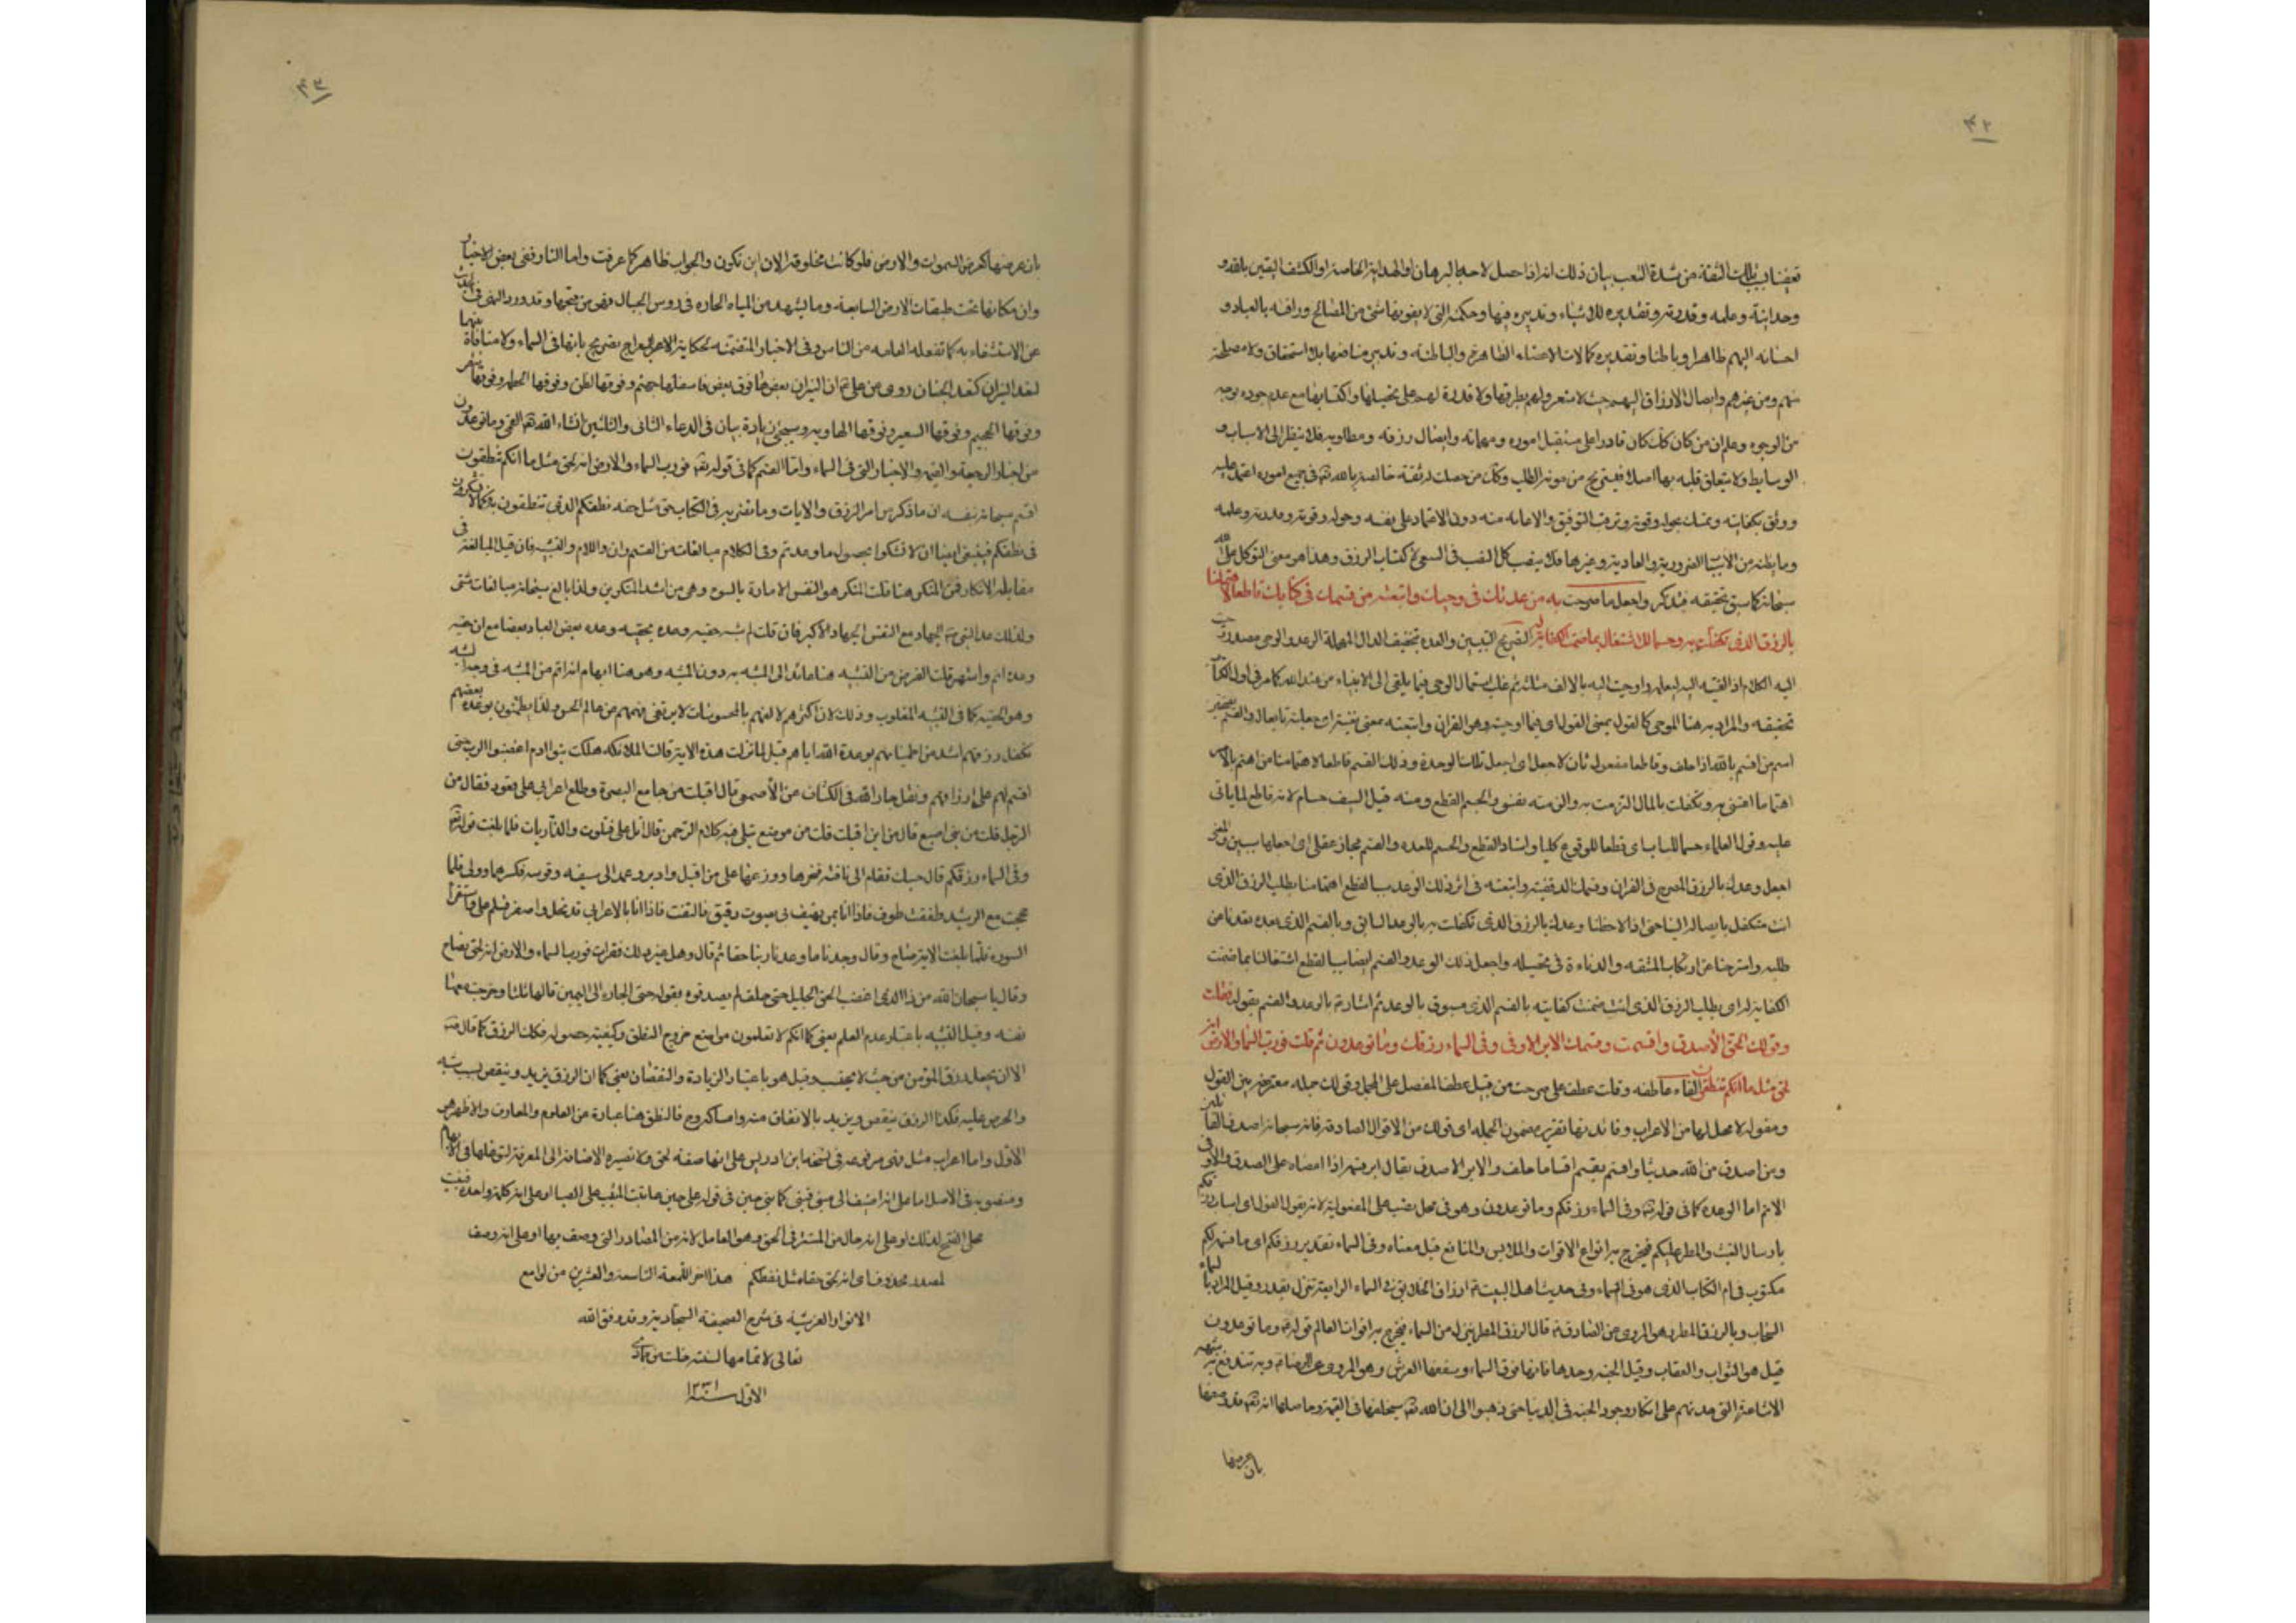 ٤٢
تعفينا بتلك الثقة من شدة التعب بيان ذلك انه اذا حصل لاحد بالبرهان او الهداية الخاصة او الكشف اليقين بالله و
وحدانيته وعلمه وقدرته وتقديره للاشياء وتدبيره فيها وحكمته التي لا يفوتها شئ من المصالح ورافته بالعباد و
احسانه اليهم ظاهرا وباطنا وتقديره كمالات الاعضاء الظاهرة والباطنة وتدبير منافعها بلا استحقاق ولا مصلحة
منهم ومن غيرهم وايصال الارزاق اليهم حيث لا شعور لهم بطرقها ولا قدرة لهم على تحصيلها واكتسابها مع عدم جوده بوجه
من الوجوه وعلم ان من كان كذلك كان قادرا على مستقبل اموره ومهماته وايصال رزقه ومطالبه فلا ينظر الى الاسباب و
الوسايط ولا يتعلق قلبه بها اصلا فيستريح من مونة الطلب وكان من حصلت له ثقة خالصة بالله تعالى في جميع اموره اعتمد عليه
ووثق بكفايته وتمسك بحوله وقوته وترقب التوفيق والاعانه منه دون الاعتماد على نفسه وحوله وقوته وقدرته وعلمه
وما يظنه من الاسباب الضرورية والعادية وغيرها فلا ينصب كل النصب في السعي لاكتساب الرزق وهذا هو معنى التوكل على الله
سبحانه كما سبق تحقيقه فتذكر واجعل ما صرحت به من عدتك في وحيك واتبعته من قسمك في كتابك قاطعا لاهتمامنا
بالرزق الذي تكفلت به وحسما للاشتغال بما ضمنت الكفاية له التصريح التبيين والعده بتخفيف الدال المهملة الوعد والوحي مصدر وحيت
اليه الكلام اذ القيته اليه ليعلمه واوحيت اليه بالالف مثله ثم غلب استعمال الوحي فيما يلقى الى الانبياء من عند الله كما مر في اول الكتاب
تحقيقه والمراد به هنا الموحى كالقول بمعنى المقول اي فيما اوحيته وهو القران
اسم من اقسم بالله اذا حلف وقاطعا مفعول ثان لاجعل اي اجعل تلك الوعدة وذلك القسم قاطعا لاهتمامنا من اهتم بالامر
اهتماما اعتنى به وتكفلت بالمال التزمت به والحسم القطع ومنه قيل السيف حسام لانه قاطع لما ياتي
عليه وقول العلماء حسما للباب اي قطعا للوقوع كليا واسناد القطع والحسم للعده والقسم مجاز عقلي اي اجعلها سببين والمعنى
اجعل وعدك بالرزق المصرح في القران وقسمك الذي قفيته واتبعته في اثر ذلك الوعد سببا لقطع اهتمامنا بطلب الرزق الذي
انت متكفل بايصاله الينا حتى اذا لاحظنا وعدك بالرزق الذي تكفلت به بالوعد السابق وبالقسم الذي بعده بعدنا من
طلبه واسترحنا عن ارتكاب المشقه والدناءة في تحصيله واجعل ذلك الوعد والقسم ايضا سببا لقطع اشتغالنا بما ضمنت
الكفاية له اي بطلب الرزق الذي انت ضمنت كفايته بالقسم الذي مسبوق بالوعد ثم اشار الى الوعد والقسم بقوله فقلت
وقولك الحق الاصدق واقسمت وقسمك الابر الاوفى وفي السماء رزقكم وما توعدون ثم قلت فورب السماء والارض انه
لحق مثل ما انكم تنطقون الفاء عاطفه وقلت عطف على صرحت من قبيل عطف المفصل على المجمل وقولك جملة معترضة بين القول
ومقوله لا محل لها من الاعراب وفائدتها تقرير مضمون الجمله اي قولك من الاقوال الصادقة فانه سبحانه اصدق القائلين
ومن اصدق من الله حديثا واقسم يقسم اقساما حلف والابر الاصدق يقال ابر قسمه اذا امضاه على الصدق والاوفى
الاتم اما الوعده كما في قوله تعالى وفي السماء رزقكم وما توعدون وهو في محل نصب على المفعولية لانه مقول القول اي اسباب رزقكم
بارسال الغيث والمطر عليكم فيخرج به انواع الاقوات والملابس والمنافع قيل معناه وفي السماء تقدير رزقكم اي ما قسمه لكم
مكتوب في ام الكتاب الذي هو في السماء وفي حديث اهل البيت ع ارزاق الخلايق في السماء الرابعة تنزل بقدر وقيل المراد بالسماء
السحاب وبالرزق المطر وهو المروي عن الصادق ع قال الرزق المطر ينزل من السماء فيخرج به اقوات العالم قوله تعالى وما توعدون
قيل هو الثواب والعقاب وقيل الجنه وحدها فانها فوق السماء وسقفها العرش وهو المروي عن الرضا ع وبه تندفع شبهة
الاشاعرة التي حدتهم على انكار وجود الجنه في الدنيا حتى ذهبوا الى ان الله تعالى سيخلقها في القيمة وحاصلها انه تعالى قد وصفها
بان عرضها
٤٣
بان عرضها كعرض السموات والارض فلو كانت مخلوقه الان اين تكون والجواب ظاهر كما عرفت واما النار ففي بعض الاخبار
وان مكانها تحت طبقات الارض السابعة وما يشهد من المياه الحاره في رؤس الجبال فهي من فيحها وقد ورد النهي في الحديث
عن الاستشفاء به كما تفعله العامه من الناس وفي الاخبار المتضمنه لحكاية المعراج تصريح بانها في السماء ولا منافاة بينهما
لتعدد النيران كتعدد الجنان روي عن علي ع ان النيران بعضها فوق بعض فاسفلها جهنم وفوقها لظى وفوقها الحطمه وفوقها سقر
وفوقها الجحيم وفوقها السعير وفوقها الهاويه وسيجئ زيادة بيان في الدعاء الثاني والثلثين انشاء الله تعالى وما توعدون
من اخبار الرجعة والقيمه والاخبار التي في السماء واما القسم كما في قوله تعالى فورب السماء والارض انه لحق مثل ما انكم تنطقون
اقسم سبحانه بنفسه ان ما ذكر من امر الرزق والايات وما تقرر به في الكتاب حق مثل حقيه نطقكم الذي تنطقون به فكما لا تشكون
في نطقكم فينبغي ايضا ان لا تشكوا بحصول ما وعدتم وفي الكلام مبالغات من القسم وان واللام والتشبيه فان قيل المبالغة في
مقابلة الانكار فمن المنكر هنا قلت المنكر هو النفس الامارة بالسوء وهي من اشد المنكرين ولذا بالغ سبحانه مبالغات شتى
ولذلك عد النبي ص الجهاد مع النفس الجهاد الاكبر فان قلت لم شبه حقيه وعده بحقيه وعده بعض العباد بعضا مع ان حقيه
وعده اتم واشهر قلت الغرض من التشبيه هنا عائد الى المشبه به دون المشبه وهو هنا ابهام انه اتم من المشبه في وجه الشبه
وهو الحقيه كما في التشبيه المقلوب وذلك لان اكثرهم لالفهم بالمحسوسات لا يرتقي فهمهم عن عالم الحس ولذا يطمئنون بوعدة بعضهم
بتكفل رزقهم اشد من اطمينانهم بوعدة الله اياهم قيل لما نزلت هذه الاية قالت الملائكه هلكت بنو ادم اغضبوا الرب حتى
اقسم لهم على ارزاقهم ونقل جار الله في الكشاف عن الاصمعي قال اقبلت من جامع البصرة وطلع اعرابي على قعود فقال من
الرجل قلت من بني اصمع قال من اين اقبلت قلت من موضع تتلى فيه كلام الرحمن قال اتل علي فتلوت والذاريات فلما بلغت قوله تعالى
وفي السماء رزقكم قال حسبك فقام الى ناقته فنحرها ووزعها على من اقبل وادبر وعمد الى سيفه وقوسه فكسرهما وولى فلما
حججت مع الرشيد طفقت اطوف فاذا انا بمن يهتف بي بصوت رقيق فالتفت فاذا انا بالاعرابي قد نحل واصفر فسلم علي واستقرأ
السوره فلما بلغت الاية صاح وقال وجدنا ما وعدنا ربنا حقا ثم قال وهل غير ذلك فقرات فورب السماء والارض انه لحق فصاح
وقال يا سبحان الله من ذا الذي اغضب الجليل حتى حلف لم يصدقوه بقوله حتى الجاءه الى اليمين قالها ثلثا وخرجت معها
نفسه وقيل التشبيه باعتبار عدم العلم يعني كما انكم لا تعلمون مواضع خروج النطق وكيفية حصوله فكذلك الرزق كما قال ع
الا ان يجعل رزق المؤمن من حيث لا يحتسب وقيل هو باعتبار الزيادة والنقصان يعني كما ان الرزق يزيد وينقص بسبب
والحرص عليه فكذا الرزق ينقص ويزيد بالانفاق منه وامساكه فالنطق هنا عبارة عن العلوم والمعارف والاظهر هو
الاول واما اعراب مثل فهي مرفوعه في نسخه ابن ادريس على انها صفه لحق ولا تضره الاضافه الى المعرفة لتوغلها في الابهام
ومنصوبه في الاصل اما على انه اضيف الى مبني فبني كما بني حين في قوله على حين عاتبت المشيب على الصبا او على انه كلمة واحدة فبنيت
على الفتح لذلك او على انه حال من المستتر في الحق وهو العامل لانه من المصادر التي وصف بها او على انه وصف
لمصدر محذوف اي انه لحق حقا مثل نطقكم هذا اخر اللمعة التاسعة والعشرين من لوامع
الانوار العرشية في شرح الصحيفة السجادية وقد وفق الله
تعالى لاتمامها لستة خلت من جمادى
الاول سنة ١٢٣١